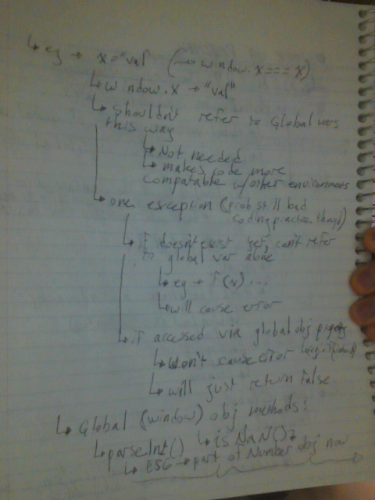 ↳ eg → x = "val" (→ window.x === x)
↳ window.x → "val"
↳ Shouldn't refer to Global vars
this way
↳ Not needed
↳ makes code more
compatable w/other environments
↳ one exception (prob still bad
coding practise though)
↳ if doesn't exist yet, can't refer
to global var alone
↳ eg → if (x) ...
↳ will cause error
↳ if accessed via global obj
↳ won't cause error
↳ will just return false.
↳ Global (window) obj methods:
↳ parseInt() ↳ isNaN()
↳ ES6 → part of Number obj now